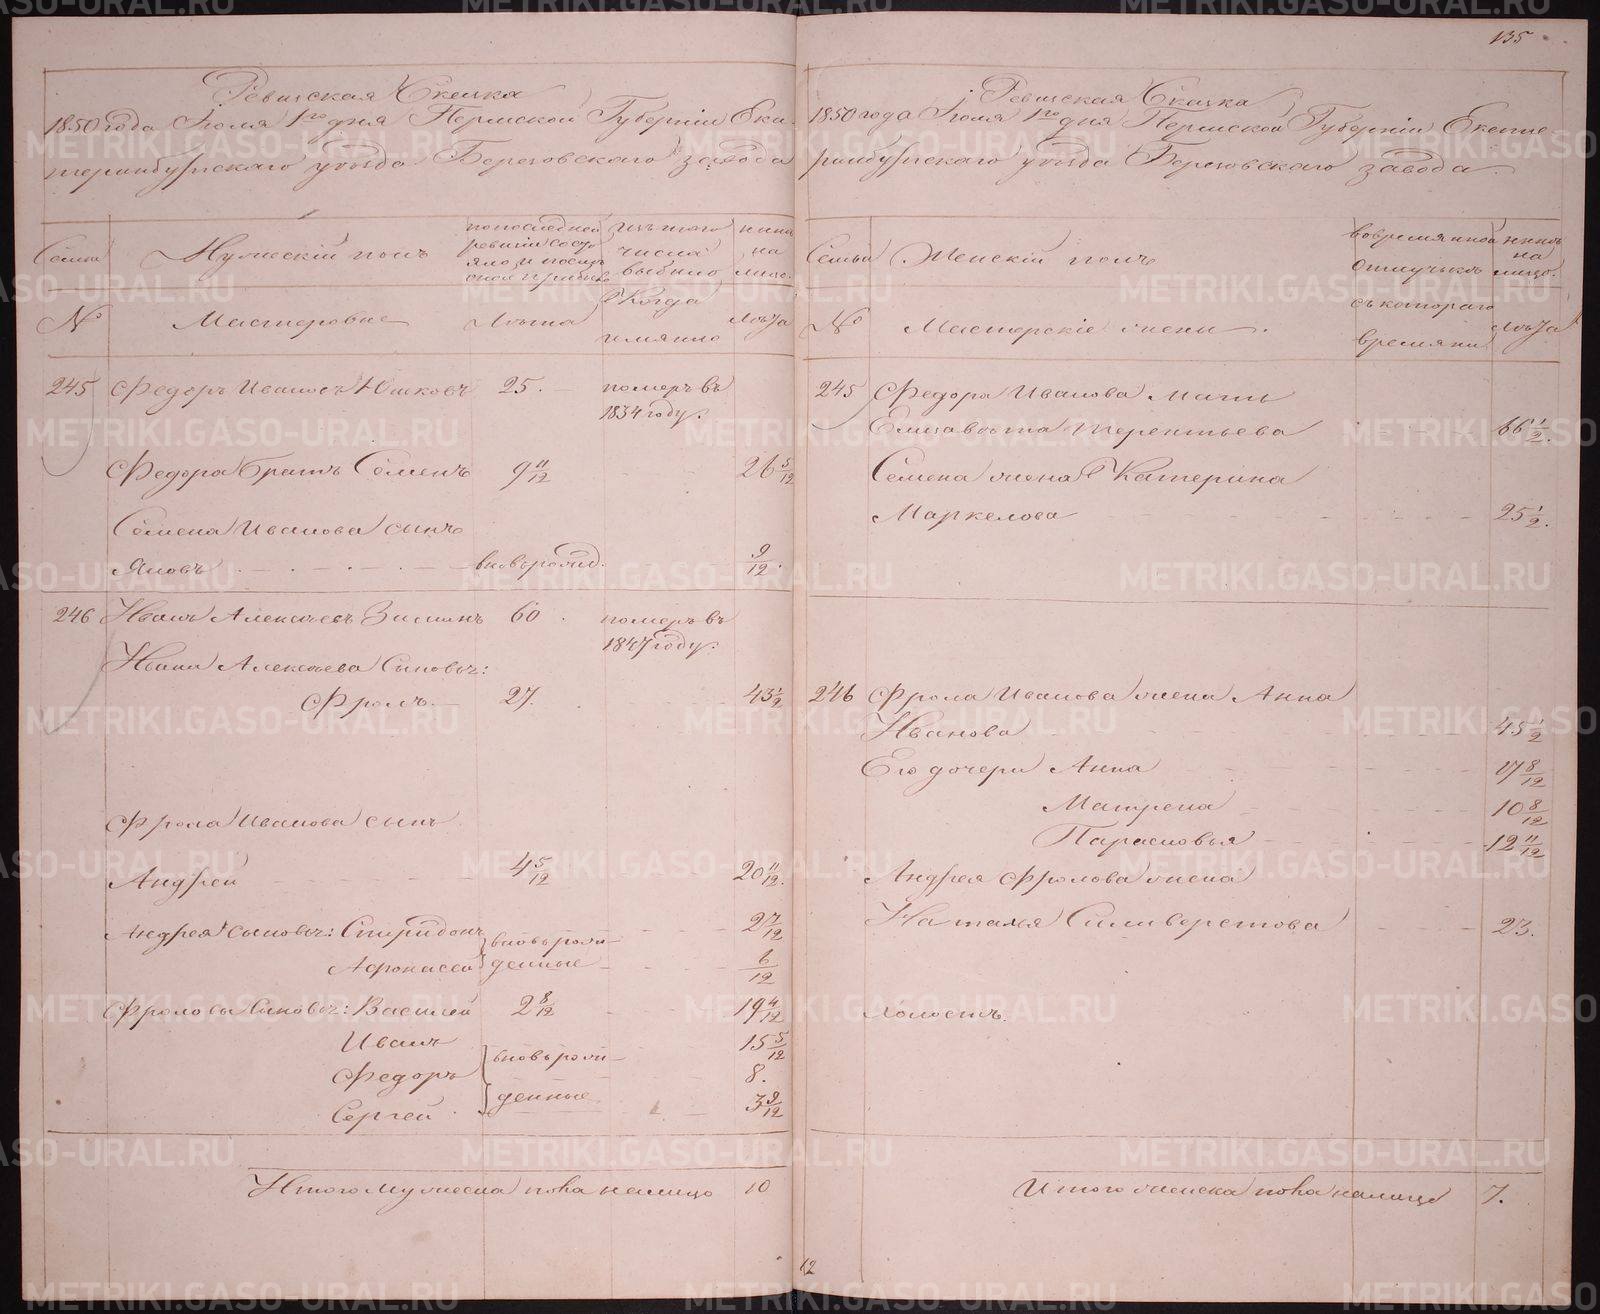 135
Ревизская Сказка
1850 года Іюля 1го дня Пермской Губерніи Ека-
теринбургскаго уѣзда Березовскаго завода
Семьи
Мужескій полъ
по последней
ревизіи состо
яло и послѣ
оной прибыло
изъ того
числа
выбыло
нынѣ
на
лицо.
№
Мастеровые
Лѣта
Когда
имянно
Лѣта
245 Федоръ Ивановъ Юшковъ 25. померъ въ
1834 году.
Федора Братъ Семенъ 9 11/12 26 5/12
Семена Иванова сынъ
Яковъ вновь рожд. 9/12.
246 Иванъ Алексѣевъ Зиминъ 60. померъ въ
1847 году.
Ивана Алексѣева Сыновья:
Фролъ 27. 43 1/2
Фрола Иванова сынъ
Андрей 4 5/12 20 11/12.
Андрея Сыновья: Спиридонъ 2 7/12
вновь рож-
денные
Афонасей 6/12
Фроловы Сыновья: Василей 2 8/12 19 4/12
Иванъ 15 5/12
вновь рож-
Федоръ 8.
денные
Сергей 3 9/12
Итого мужеска пола налицо 10
Ревизская Сказка
1850 года Іюля 1го дня Пермской Губерніи Екате-
ринбургскаго уѣзда Березовскаго завода.
Семьи
Женскій полъ
во временной
отлучкѣ
нынѣ
на
лицо.
№
Мастерскіе жены.
съ котораго
времяни
Лѣта
245 Федора Иванова Мать
Елизавета Терентьева 66 1/2.
Семена жена Катерина
Маркелова 25 1/2.
246 Фрола Иванова жена Анна
Иванова 45 1/2
Его дочери Анна 17 8/12
Матрена 10 8/12
Парасковья 12 11/12
Андрея Фролова жена
Наталья Силиверстова 23.
Холостъ.
Итого женска пола налицо 7.
12
METRIKI.GASO-URAL.RU